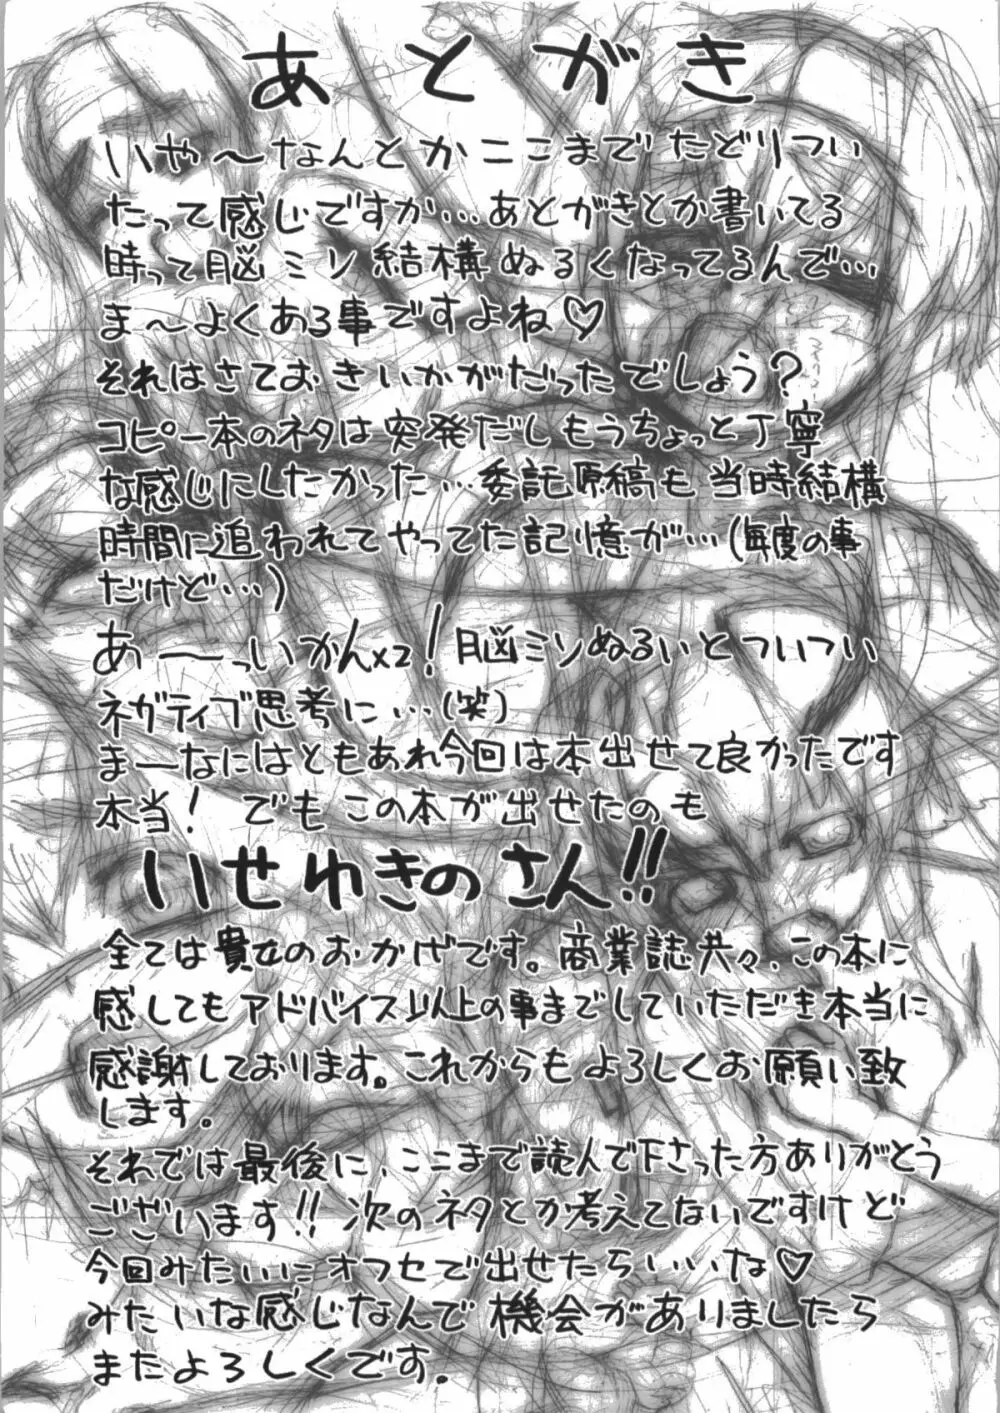 あとがき
いや～なんとかここまでたどりつい
たって感じですが…あとがきとか書いてる
時って脳ミソ結構ぬるくなってるんで…
ま～よくある事ですよね♡
それはさておきいかがだったでしょう?
コピー本のネタは突発だしもうちょっと丁寧
な感じにしたかった…委託原稿も当時結構
時間に追われてやってた記憶が…(毎度の事
だけど…)
あ──っいかん×2!脳ミソぬるいとついつい
ネガティブ思考に…(笑)
まーなにはともあれ今回は本出せて良かったです
本当! でもこの本が出せたのも
いせゆきのさん!!
全ては貴女のおかげです。商業誌共々、この本に
感してもアドバイス以上の事までしていただき本当に
感謝しております。これからもよろしくお願い致
します。
それでは最後に、ここまで読んで下さった方ありがとう
ございます!! 次のネタとか考えてないですけど
今回みたいにオフセで出せたらいいな♡
みたいな感じなんで機会がありましたら
またよろしくです。